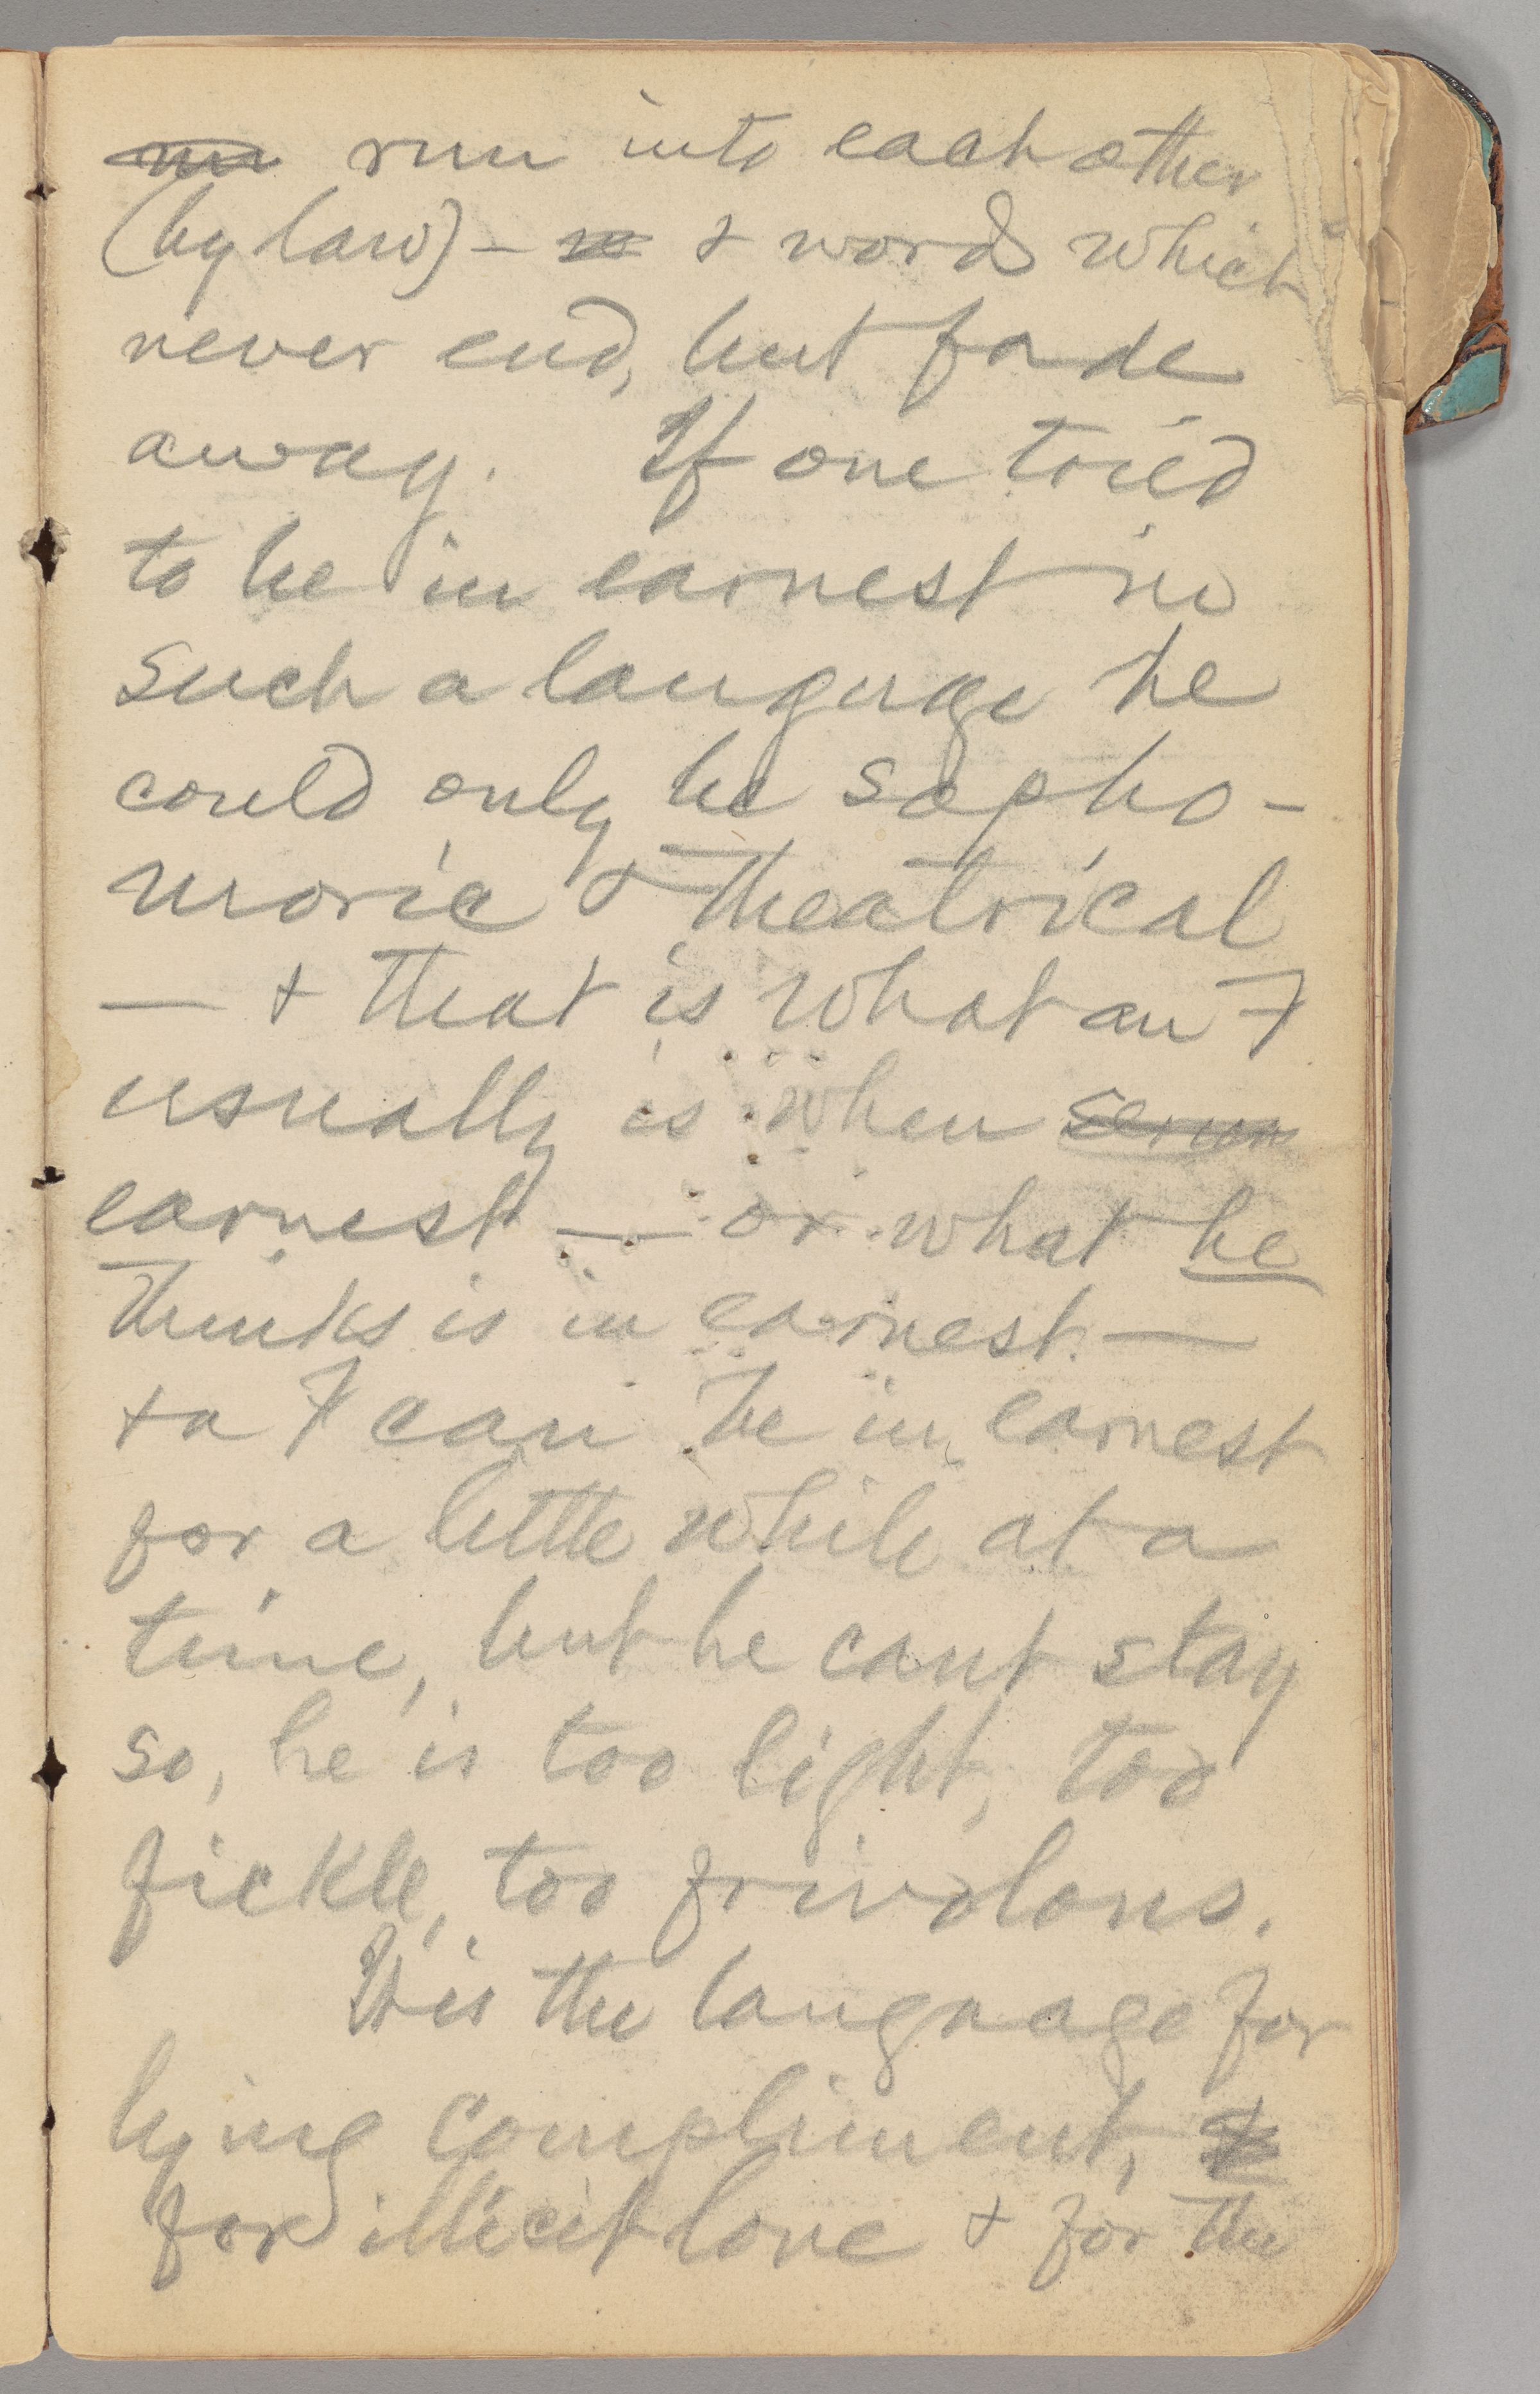 run into each other
(by law) – & words which
never end, but fade
away. If one tried
to be in earnest in
such a language he
could only be sopho-
moric & theatrical
— & that is what an F
usually is when
earnest — or what he
thinks is in earnest. —
& a F can be in earnest
for a little while at a
time, but he cant stay
so, he is too light, too
fickle, too frivolous.
It is the language for
lying compliment, &
for illicit love & for the